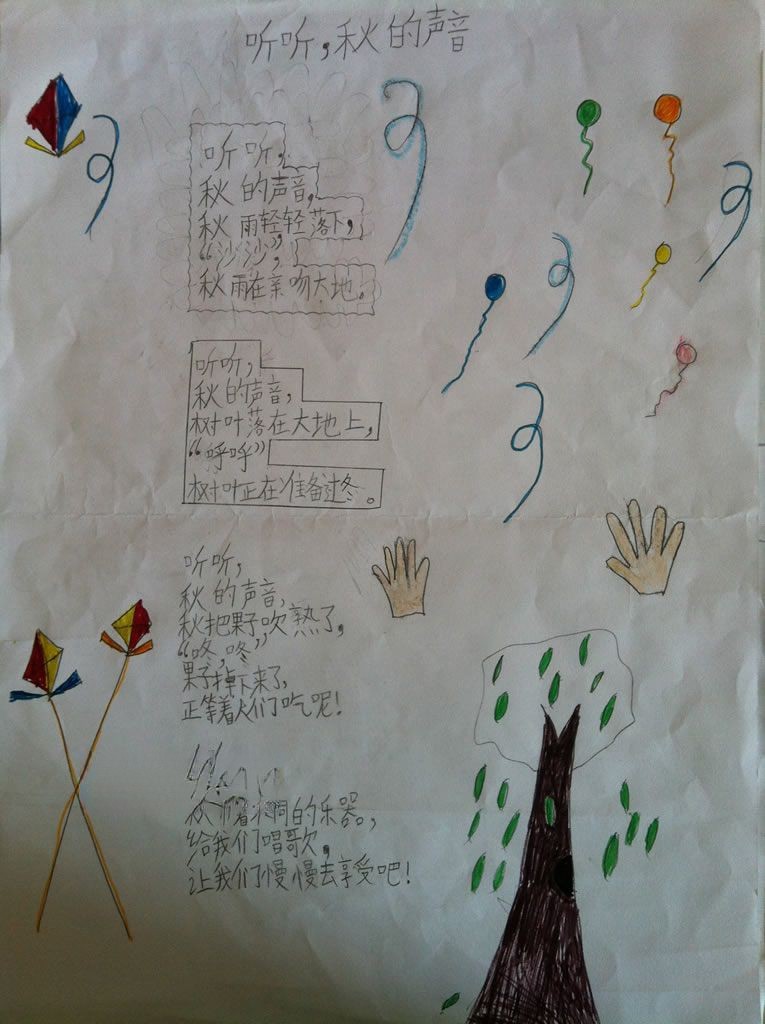 听听,秋的声音
听听,
秋的声音,
秋雨轻轻落下,
“沙沙”,
秋雨在亲吻大地。
听听,
秋的声音,
树叶落在大地上,
“呼呼”
树叶正在准备过冬。
听听,
秋的声音,
秋把果子吹熟了,
“咚,咚”,
果子掉下来了,
正等着人们吃呢!
秋 的乐器。,
给我们唱歌,
让我们慢慢去享受吧!